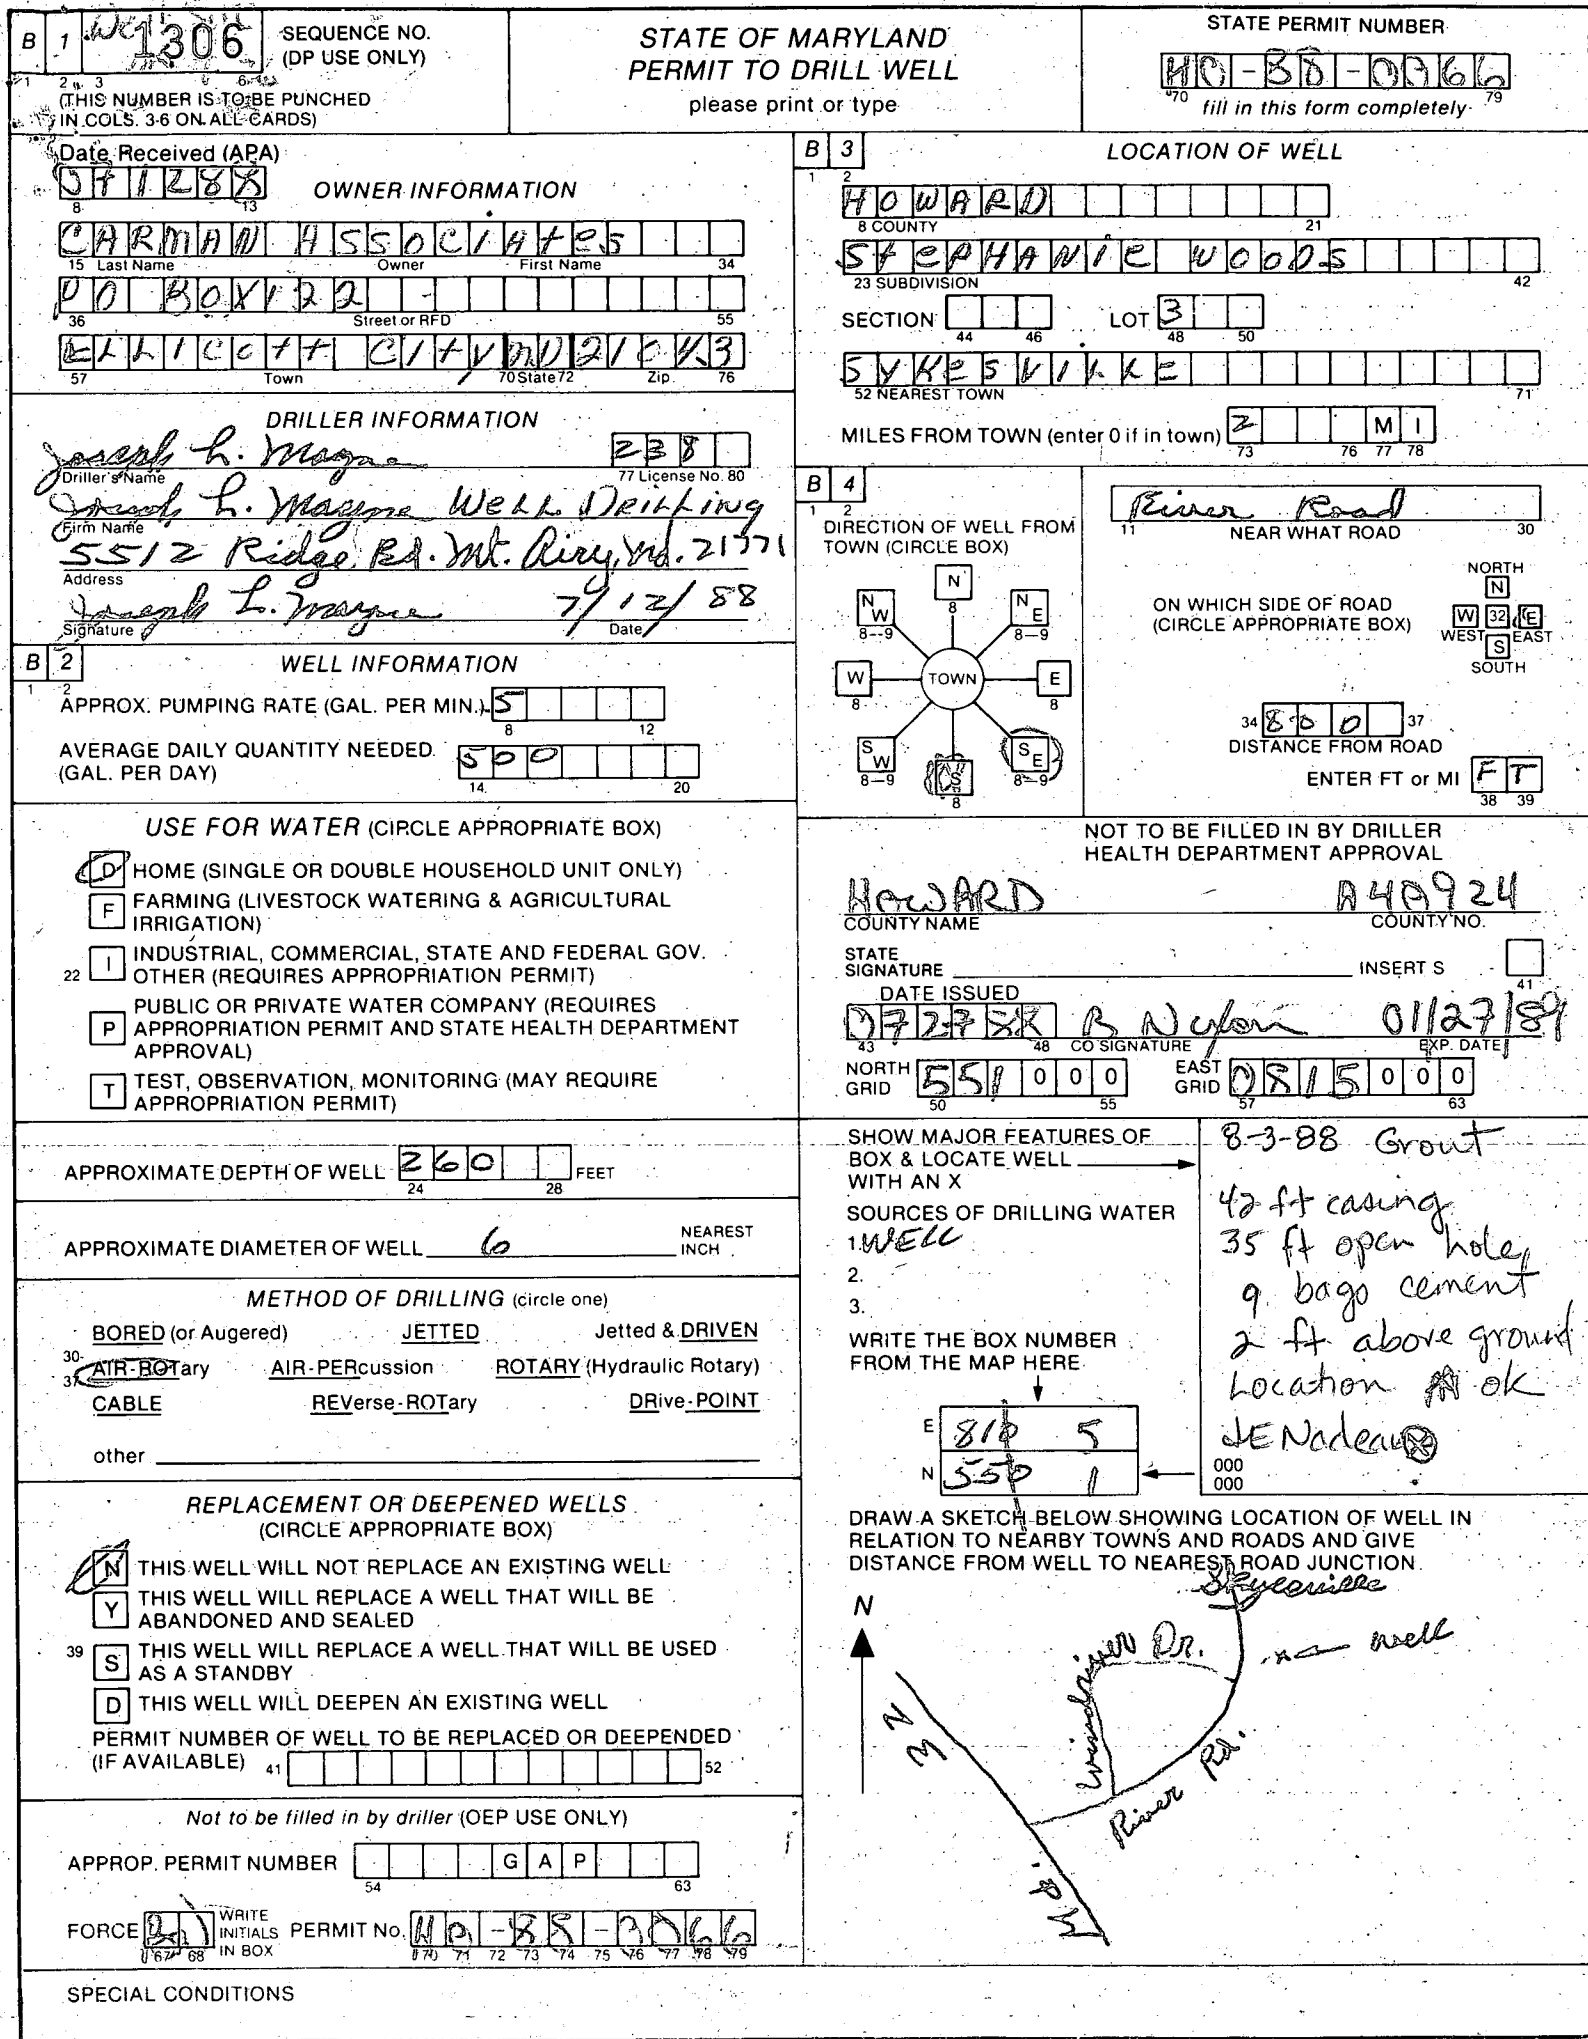 B 1 1306 SEQUENCE NO. (DP USE ONLY)
1 2 3 6
(THIS NUMBER IS TO BE PUNCHED
IN COLS. 3-6 ON ALL CARDS)
STATE OF MARYLAND
PERMIT TO DRILL WELL
please print or type
STATE PERMIT NUMBER
HO-88-0066
70 79
fill in this form completely
Date Received (APA)
071288
8 13
OWNER INFORMATION
CARMAN ASSOCIAtes
15 Last Name Owner First Name 34
PO BOX122
36 Street or RFD 55
ELLICOtt CItY MD 21043
57 Town 70 State 72 Zip 76
DRILLER INFORMATION
Joseph L. Mayne 238
Driller's Name 77 License No. 80
Joseph L. Mayne Well Drilling
Firm Name
5512 Ridge Rd. Mt. Airy, Md. 21771
Address
Joseph L. Mayne 7/12/88
Signature Date
B 2 WELL INFORMATION
1 2
APPROX. PUMPING RATE (GAL. PER MIN.) 5
8 12
AVERAGE DAILY QUANTITY NEEDED
(GAL. PER DAY) 500
14 20
USE FOR WATER (CIRCLE APPROPRIATE BOX)
D HOME (SINGLE OR DOUBLE HOUSEHOLD UNIT ONLY)
F FARMING (LIVESTOCK WATERING & AGRICULTURAL
IRRIGATION)
22 I INDUSTRIAL, COMMERCIAL, STATE AND FEDERAL GOV.
OTHER (REQUIRES APPROPRIATION PERMIT)
P PUBLIC OR PRIVATE WATER COMPANY (REQUIRES
APPROPRIATION PERMIT AND STATE HEALTH DEPARTMENT
APPROVAL)
T TEST, OBSERVATION, MONITORING (MAY REQUIRE
APPROPRIATION PERMIT)
APPROXIMATE DEPTH OF WELL 260 FEET
24 28
APPROXIMATE DIAMETER OF WELL 6 NEAREST
INCH
METHOD OF DRILLING (circle one)
BORED (or Augered) JETTED Jetted & DRIVEN
30-
37 AIR-ROTary AIR-PERcussion ROTARY (Hydraulic Rotary)
CABLE REVerse-ROTary DRive-POINT
other
REPLACEMENT OR DEEPENED WELLS
(CIRCLE APPROPRIATE BOX)
N THIS WELL WILL NOT REPLACE AN EXISTING WELL
Y THIS WELL WILL REPLACE A WELL THAT WILL BE
ABANDONED AND SEALED
39 S THIS WELL WILL REPLACE A WELL THAT WILL BE USED
AS A STANDBY
D THIS WELL WILL DEEPEN AN EXISTING WELL
PERMIT NUMBER OF WELL TO BE REPLACED OR DEEPENDED
(IF AVAILABLE) 41 52
Not to be filled in by driller (OEP USE ONLY)
APPROP. PERMIT NUMBER G A P
54 63
FORCE WRITE
INITIALS
IN BOX PERMIT No. HO-88-0066
67 68 70 71 72 73 74 75 76 77 78 79
SPECIAL CONDITIONS
B 3 LOCATION OF WELL
1 2
HOWARD
8 COUNTY 21
StePHANIe WOODS
23 SUBDIVISION 42
SECTION LOT 3
44 46 48 50
SYKesVILLE
52 NEAREST TOWN 71
MILES FROM TOWN (enter 0 if in town) 2 M I
73 76 77 78
B 4
1 2
DIRECTION OF WELL FROM
TOWN (CIRCLE BOX)
N
8
NW NE
8-9 8-9
W TOWN E
8 8
SW S SE
8-9 8 8-9
River Road
11 NEAR WHAT ROAD 30
ON WHICH SIDE OF ROAD
(CIRCLE APPROPRIATE BOX)
NORTH
N
W 32 E
WEST EAST
S
SOUTH
34 800 37
DISTANCE FROM ROAD
ENTER FT or MI F T
38 39
NOT TO BE FILLED IN BY DRILLER
HEALTH DEPARTMENT APPROVAL
HOWARD A40924
COUNTY NAME COUNTY NO.
STATE
SIGNATURE INSERT S
41
DATE ISSUED
072788 01/27/89
43 48 CO SIGNATURE EXP. DATE
NORTH
GRID 551 0 0 0 EAST
GRID 0815 0 0 0
50 55 57 63
SHOW MAJOR FEATURES OF
BOX & LOCATE WELL
WITH AN X
SOURCES OF DRILLING WATER
1. WELL
2.
3.
WRITE THE BOX NUMBER
FROM THE MAP HERE
E 810 5
N 550 1
8-3-88 Grout
42 ft casing
35 ft open hole
9 bags cement
2 ft above ground
Location ok
JE Nadeau
000
000
DRAW A SKETCH BELOW SHOWING LOCATION OF WELL IN
RELATION TO NEARBY TOWNS AND ROADS AND GIVE
DISTANCE FROM WELL TO NEAREST ROAD JUNCTION
N
x well
Dr.
River Rd.
32